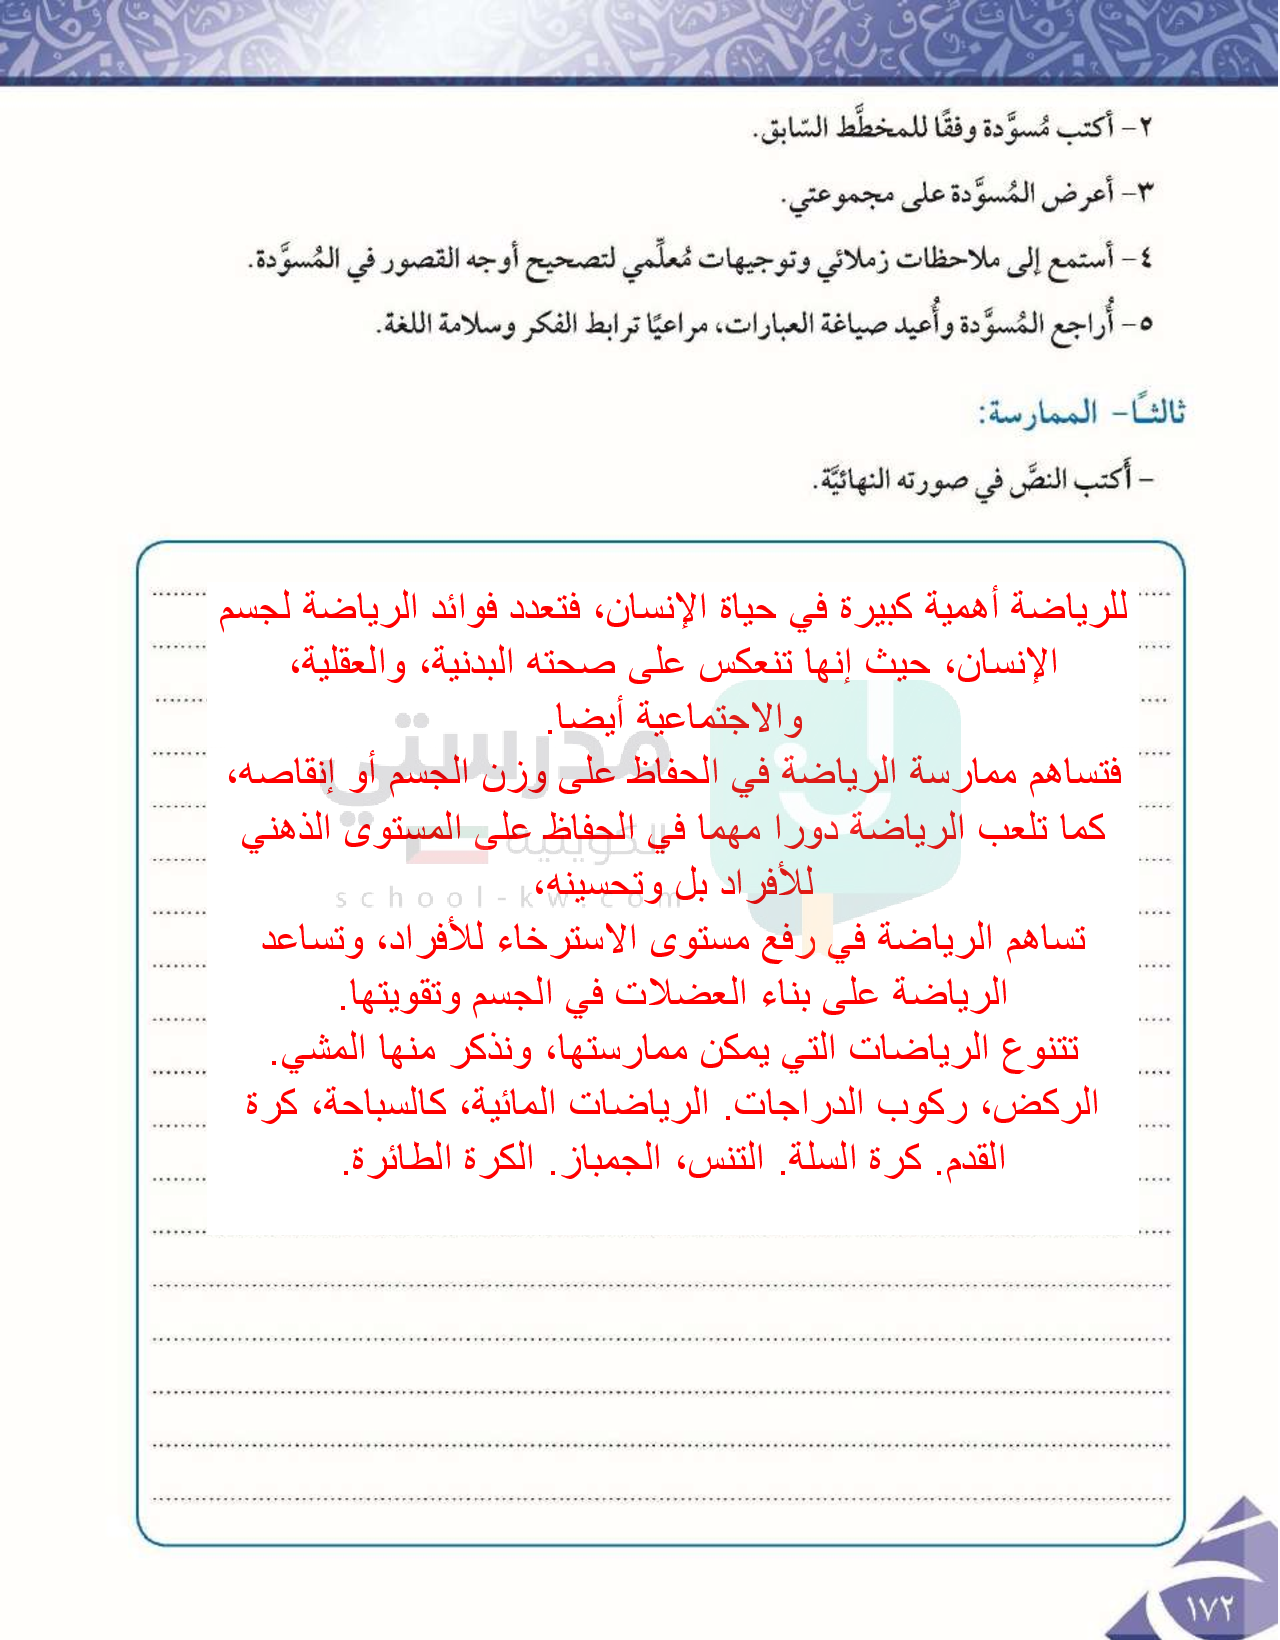 ٢- أكتب مُسوَّدة وفقًا للمخطَّط السّابق.
٣- أعرض المُسوَّدة على مجموعتي.
٤- أستمع إلى ملاحظات زملائي وتوجيهات مُعلِّمي لتصحيح أوجه القصور في المُسوَّدة.
٥- أُراجع المُسوَّدة وأُعيد صياغة العبارات، مراعيًا ترابط الفكر وسلامة اللغة.
ثالثًا- الممارسة:
- أَكتب النصَّ في صورته النهائيَّة.
للرياضة أهمية كبيرة في حياة الإنسان، فتعدد فوائد الرياضة لجسم
الإنسان، حيث إنها تنعكس على صحته البدنية، والعقلية،
والاجتماعية أيضا.
مدرستي
فتساهم ممارسة الرياضة في الحفاظ على وزن الجسم أو إنقاصه،
كما تلعب الرياضة دورا مهما في الحفاظ على المستوى الذهني
الكويتية
للأفراد بل وتحسينه،
school-kw.com
تساهم الرياضة في رفع مستوى الاسترخاء للأفراد، وتساعد
الرياضة على بناء العضلات في الجسم وتقويتها.
تتنوع الرياضات التي يمكن ممارستها، ونذكر منها المشي.
الركض، ركوب الدراجات. الرياضات المائية، كالسباحة، كرة
القدم. كرة السلة. التنس، الجمباز. الكرة الطائرة.
١٧٢